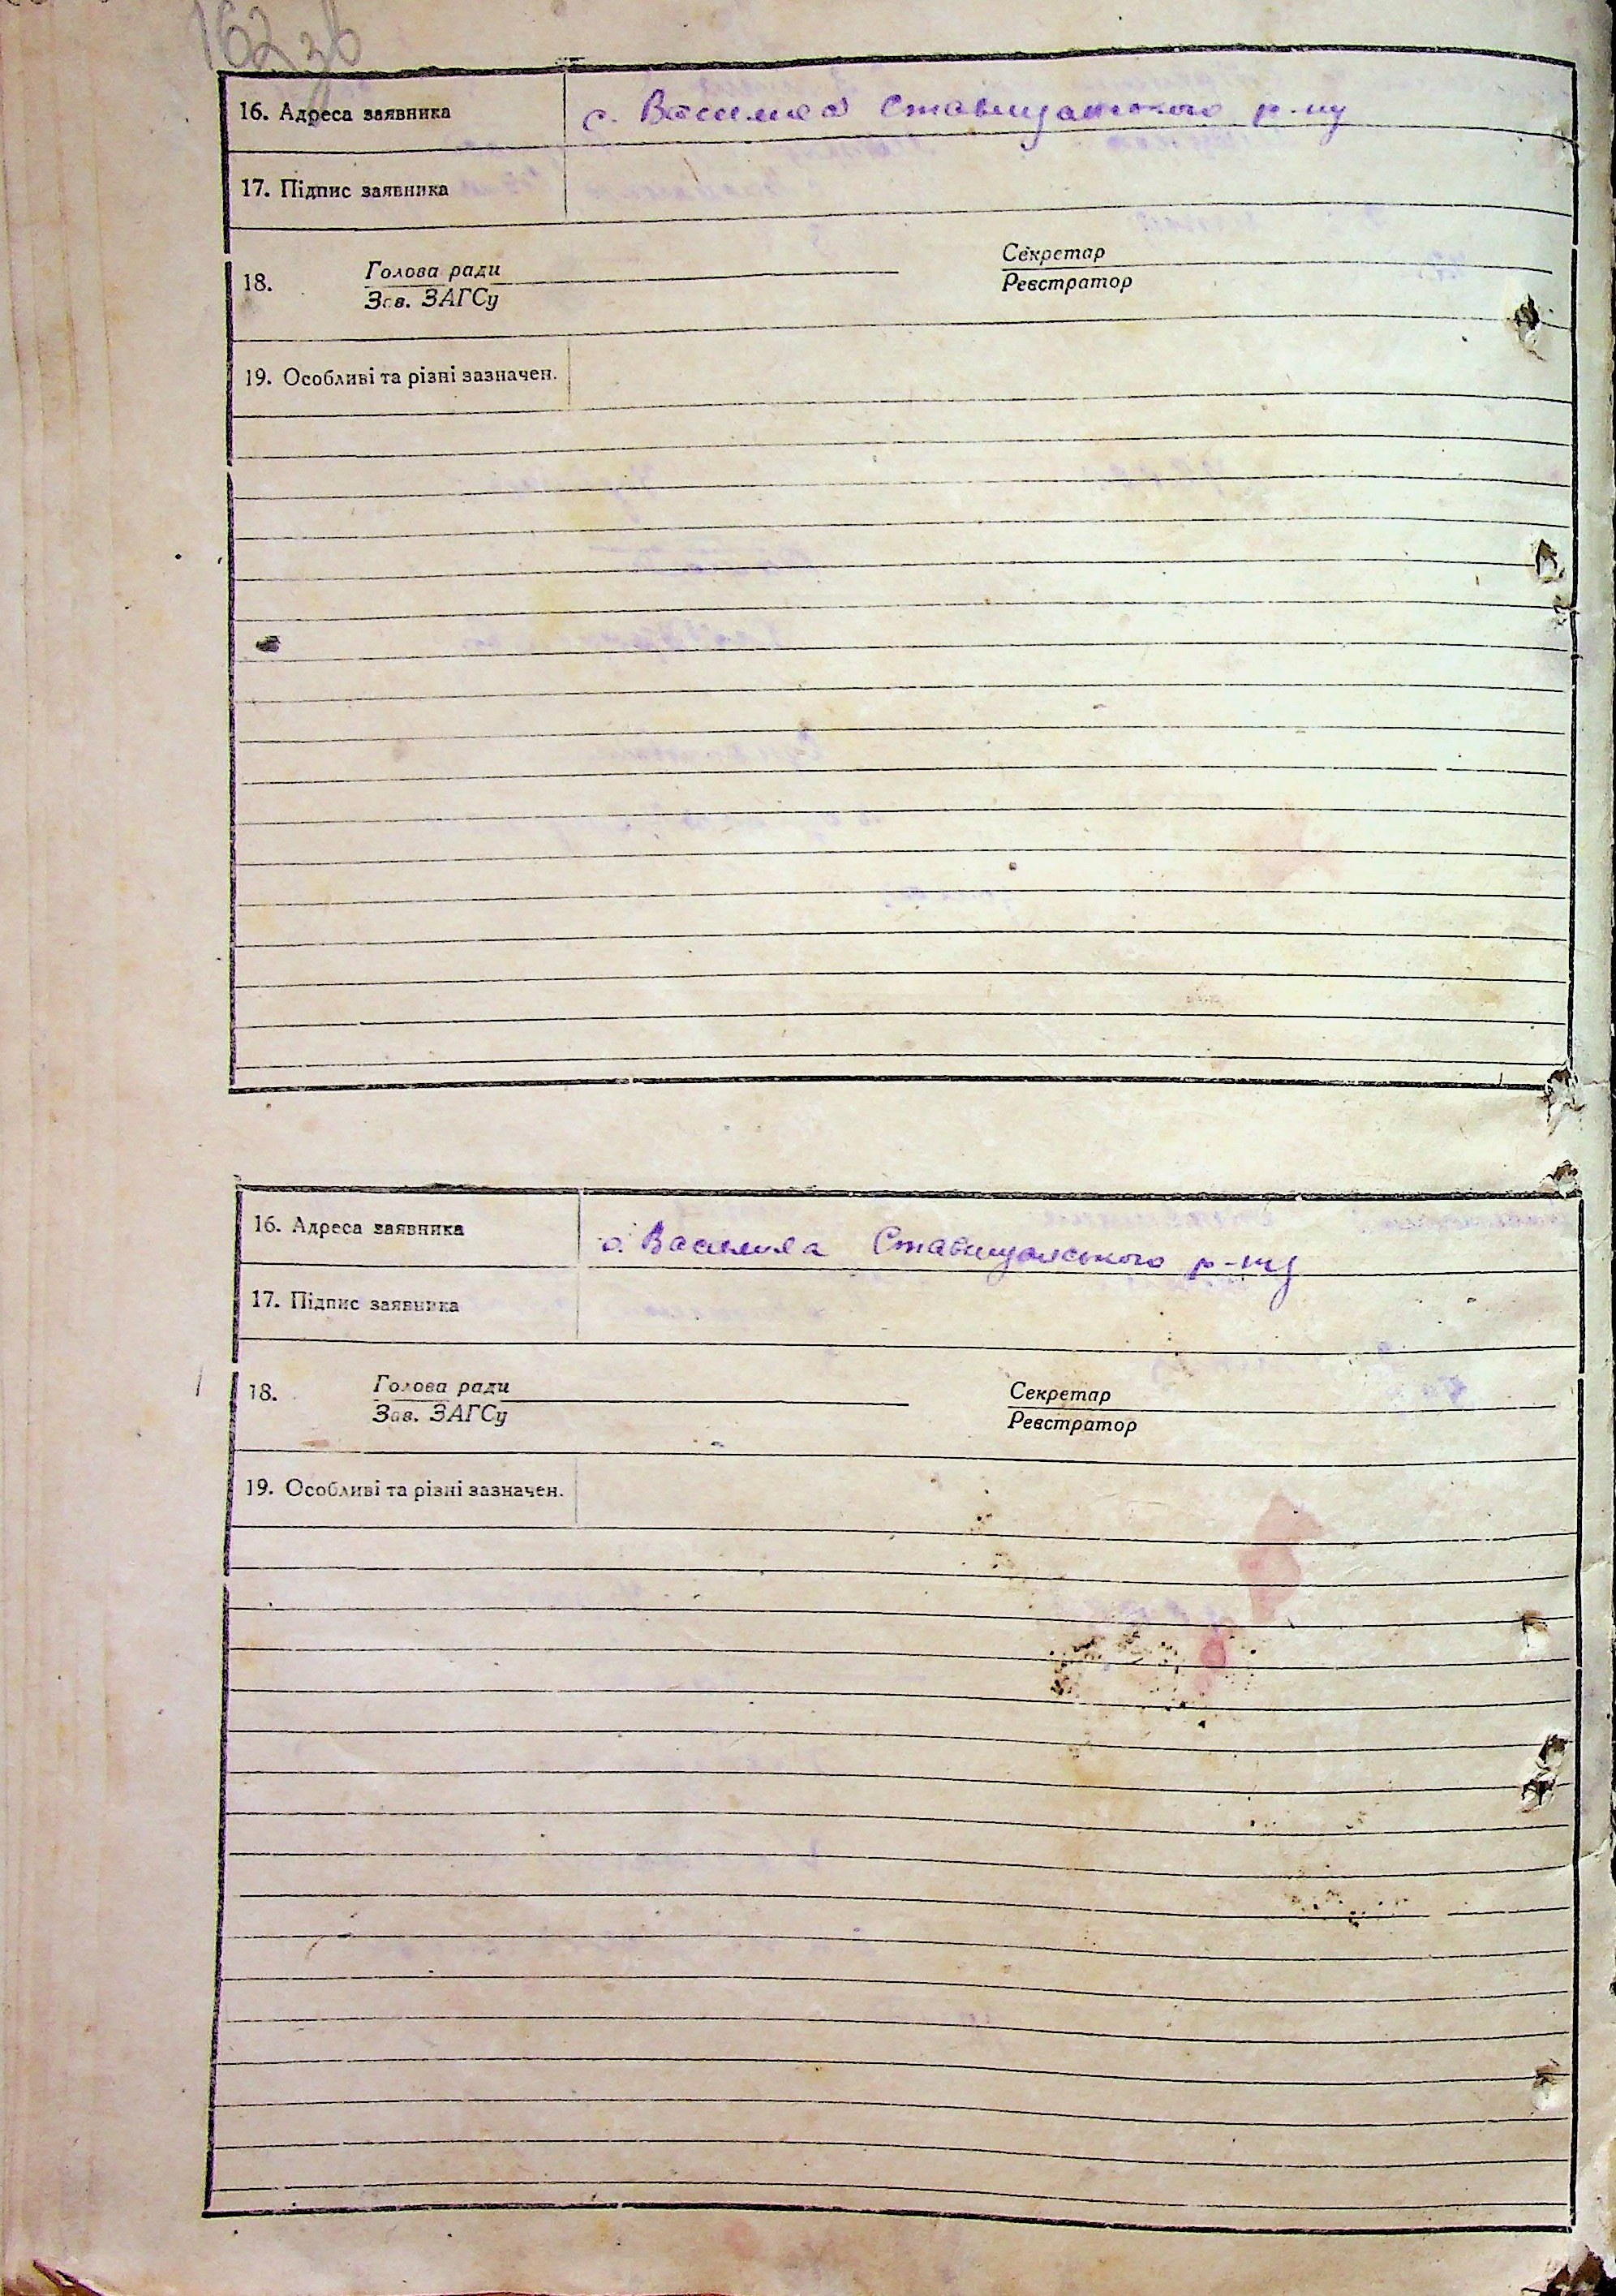 162 зв
16. Адреса заявника с. Василиха Ставищанського р-ну
17. Підпис заявника
18. Голова ради Секретар
Зав. ЗАГСу Реєстратор
19. Особливі та різні зазначен.
16. Адреса заявника с. Василиха Ставищанського р-ну
17. Підпис заявника
18. Голова ради Секретар
Зав. ЗАГСу Реєстратор
19. Особливі та різні зазначен.